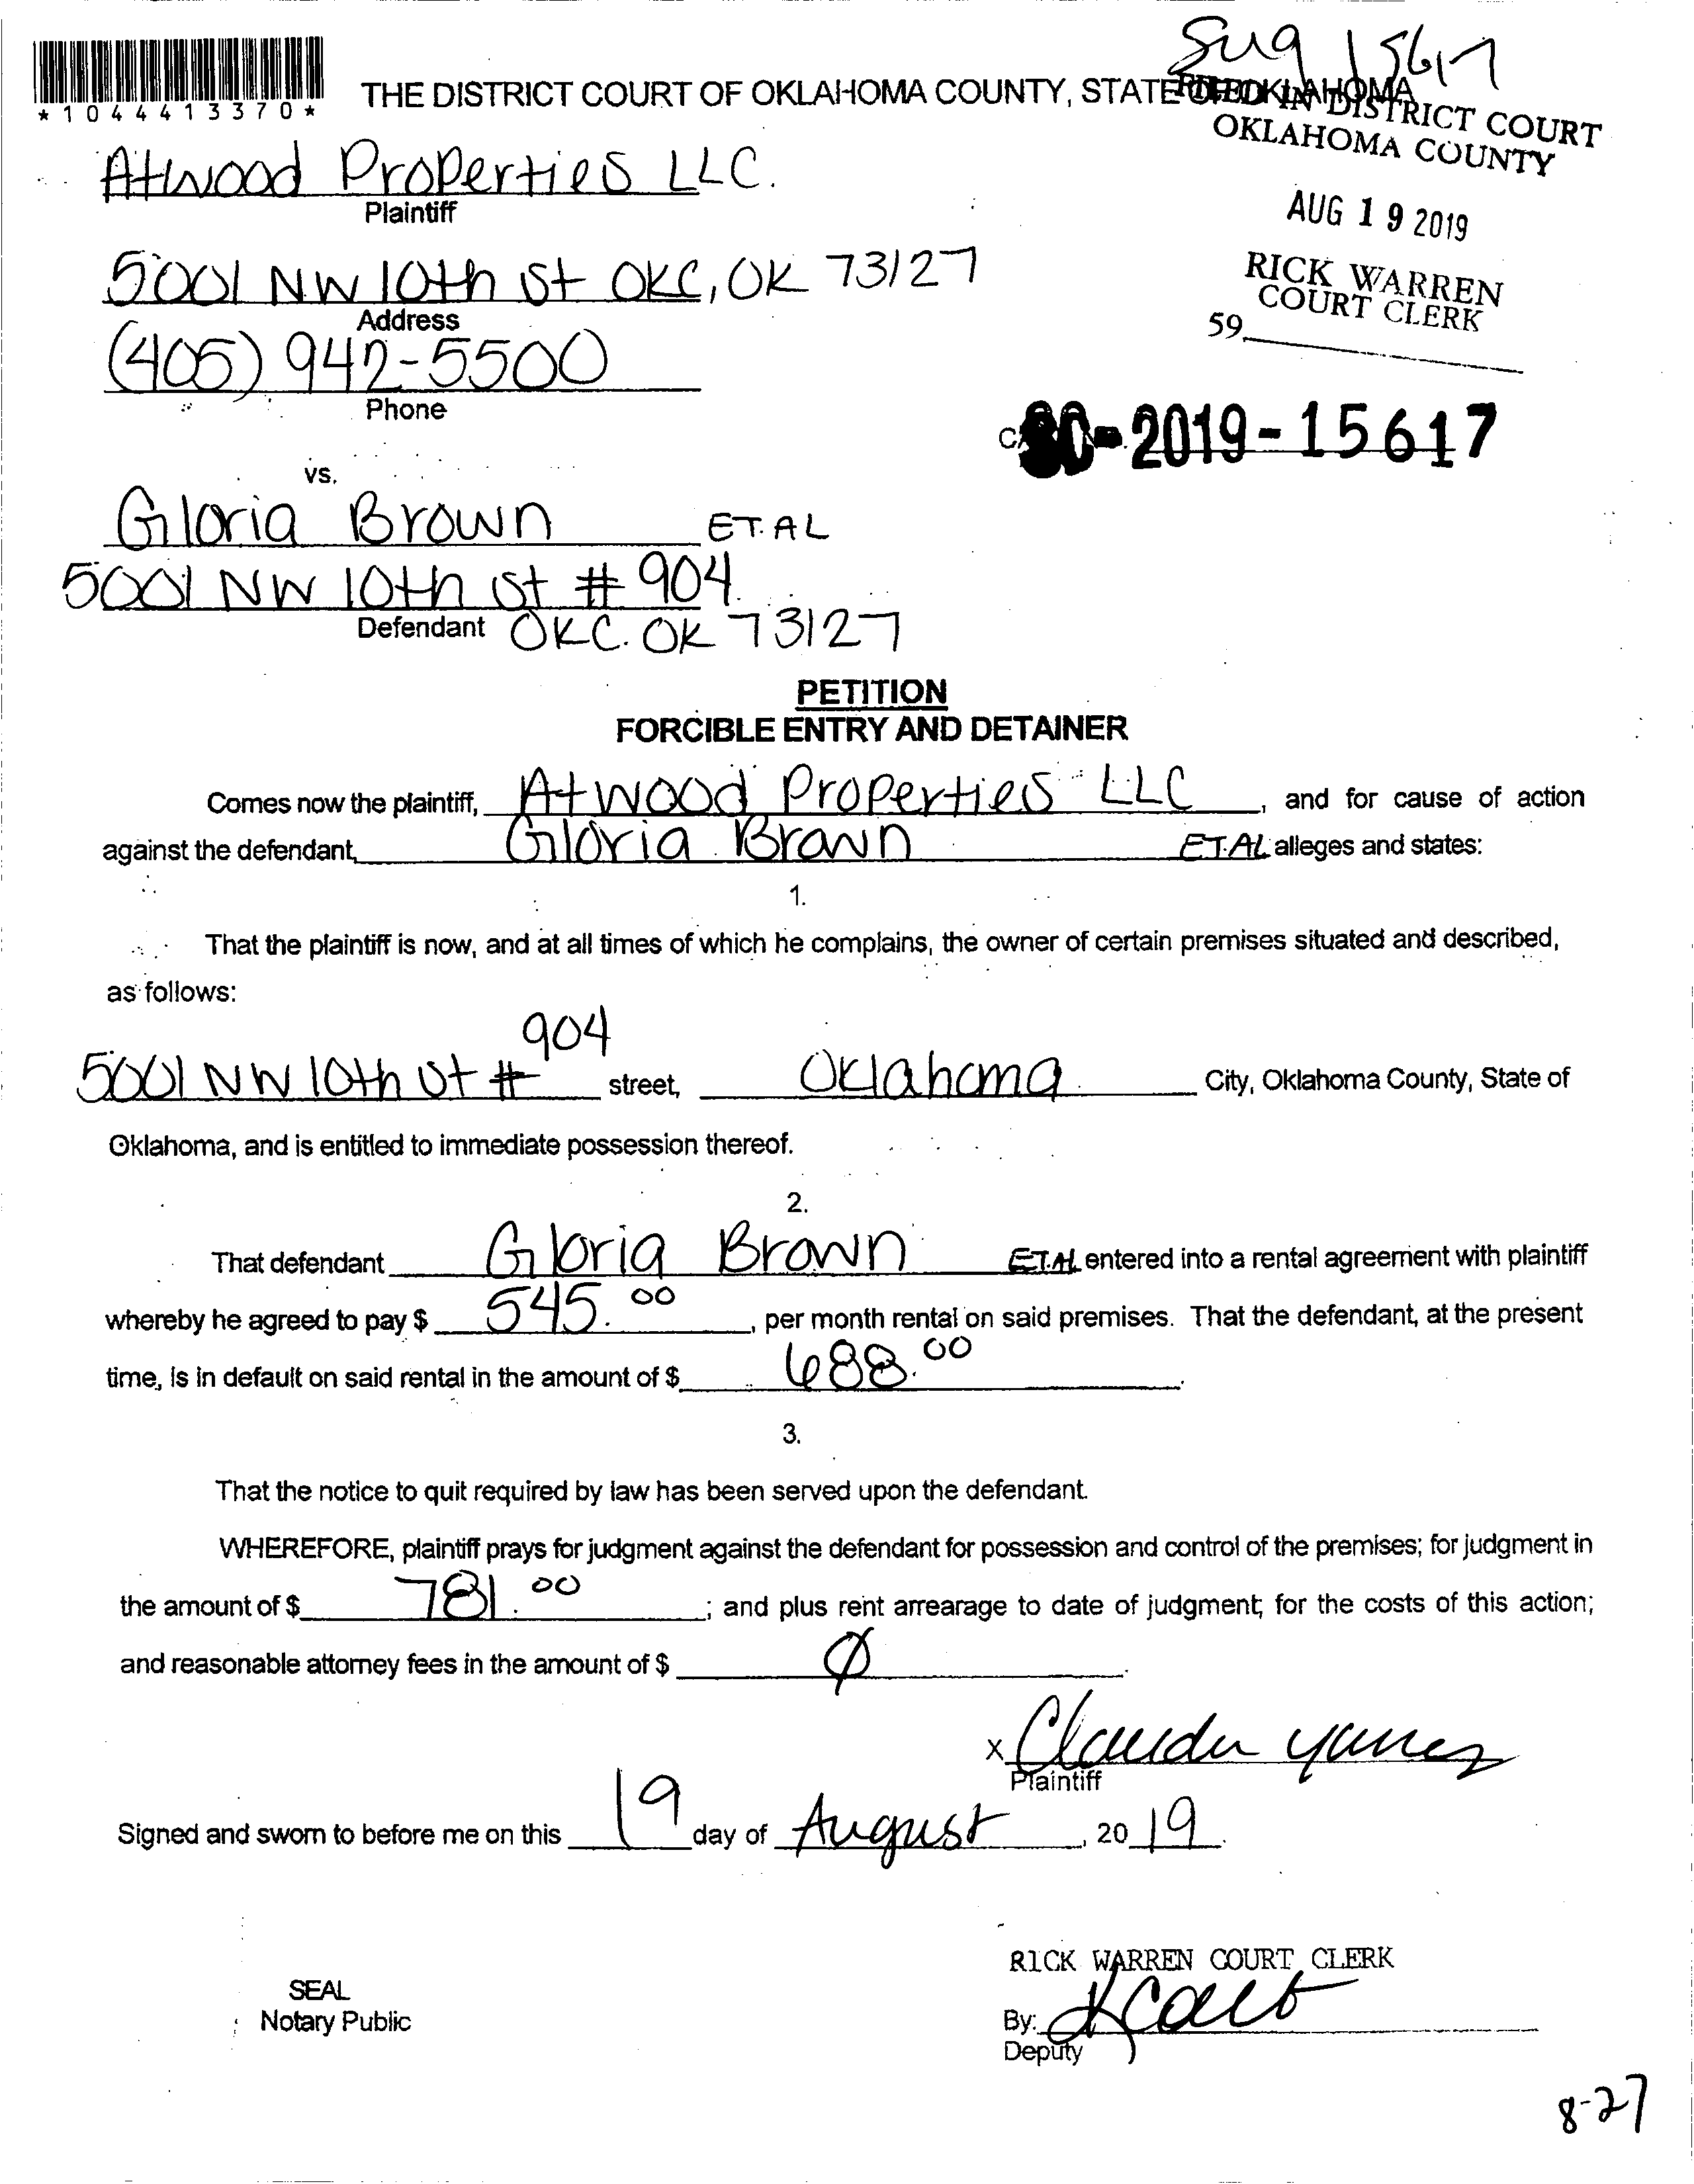 *1044413370*
THE DISTRICT COURT OF OKLAHOMA COUNTY, STATE OF OKLAHOMA
FILED IN DISTRICT COURT
OKLAHOMA COUNTY
Atwood Properties LLC.
Plaintiff
AUG 19 2019
5001 NW 10th St OKC, OK 73127
Address
RICK WARREN
COURT CLERK
59
(405) 942-5500
Phone
SC-2019-15617
vs.
Gloria Brown ET.AL
5001 NW 10th St # 904
Defendant OKC. OK 73127
PETITION
FORCIBLE ENTRY AND DETAINER
Comes now the plaintiff, Atwood Properties LLC, and for cause of action
against the defendant, Gloria Brown ET.AL alleges and states:
1.
That the plaintiff is now, and at all times of which he complains, the owner of certain premises situated and described,
as follows:
904
5001 NW 10th St # street, Oklahoma City, Oklahoma County, State of
Oklahoma, and is entitled to immediate possession thereof.
2.
That defendant Gloria Brown ET.AL entered into a rental agreement with plaintiff
whereby he agreed to pay $ 545.00, per month rental on said premises. That the defendant, at the present
time, is in default on said rental in the amount of $ 688.00.
3.
That the notice to quit required by law has been served upon the defendant.
WHEREFORE, plaintiff prays for judgment against the defendant for possession and control of the premises; for judgment in
the amount of $ 781.00; and plus rent arrearage to date of judgment; for the costs of this action;
and reasonable attorney fees in the amount of $ Ø.
x
Plaintiff
Signed and sworn to before me on this 19 day of August, 2019.
RICK WARREN COURT CLERK
SEAL
Notary Public
By:
Deputy
8-27